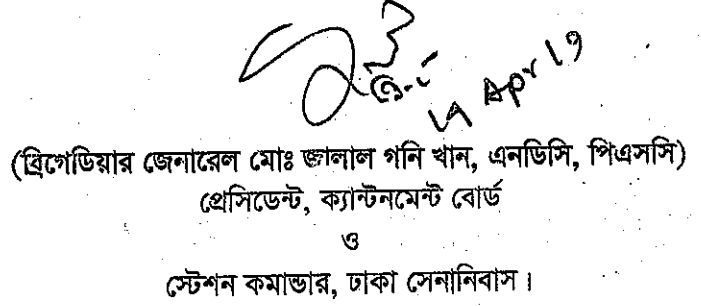 Apr 19
(ব্রিগেডিয়ার জেনারেল মোঃ জালাল গনি খান, এনডিসি, পিএসসি)
প্রেসিডেন্ট, ক্যান্টনমেন্ট বোর্ড
ও
স্টেশন কমান্ডার, ঢাকা সেনানিবাস।